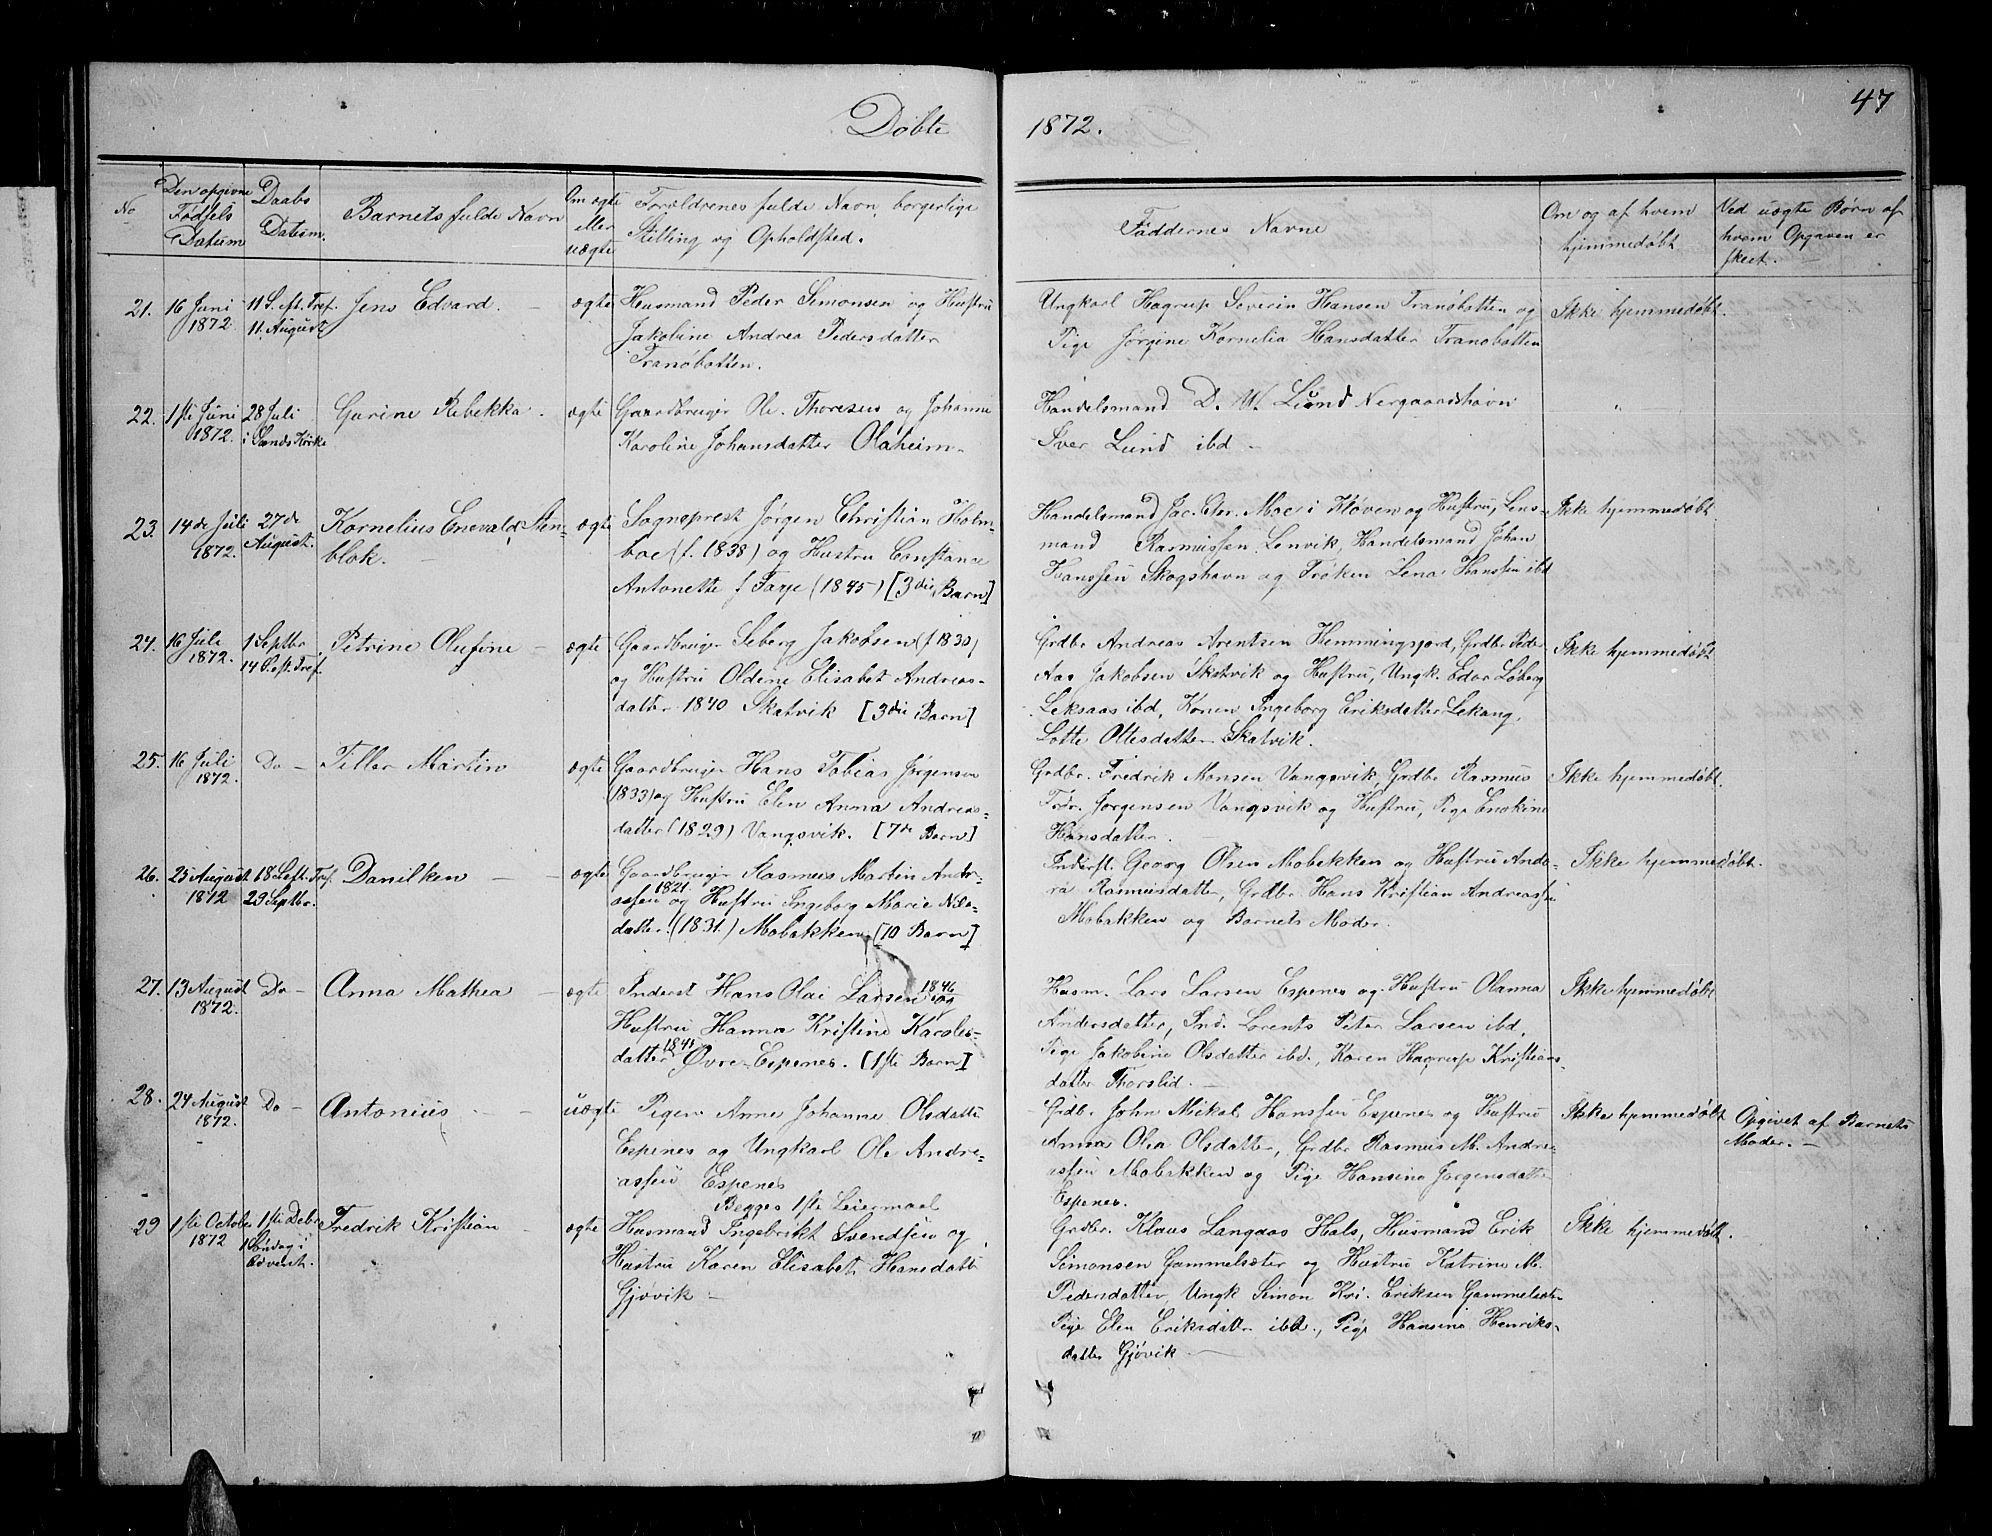 Døbte 1872. 47
No
Den opgivne Fødsels Datum
Daabs Datum.
Barnets fulde Navn
Om ægte eller uægte
Forældrenes fulde Navn, borgerlige Stilling og Opholdsted.
Faddernes Navne
Om og af hvem hjemmedøbt
Ved uægte Børn af hvem Opgaven er skeet.
21. 16 Juni 1872 11 S. eft. Tref. 11. August Jens Edvard. ægte
Husmand Peder Simonsen og Hustru
Jakobine Andrea Pedersdatter
Tranøbotten.
Ungkarl Hagrup Soverin Hansen Tranøbotten og
Pige Jørgine Kornelia Hansdatter Tranøbotten
Ikke hjemmedøbt.
22. 1ste Juni 1872. 28 Juli i Sands Kirke Gurine Rebekka. ægte
Gaardbruger Ole Thoresen og Johanne
Karoline Johansdatter Olaheim.
Handelsmand D. W. Lund Nergaardshavn
Iver Lund ibd
"
23. 14de Juli 1872. 27de August. Kornelius Enevald Stenblok. ægte
Sogneprest Jørgen Christian Holmboe (f. 1838) og Hustru Constance
Antonette f Farje (1845) [3die Barn]
Handelsmand Jac. Chr. Moe i Kløven og Hustru, Lensmand Rasmussen Lenvik, Handelsmand Johan
Hanssen Skogshavn og Frøken Lena Hanssen ibd
Ikke hjemmedøbt
24. 16 Juli 1872. 1 Septbr 14 S. eft. Tref. Petrine Olufine ægte
Gaardbruger Seberg Jakobsen (f 1830)
og Hustru Oldene Elisabet Andreasdatter 1840 Skatvik [3die Barn]
Grdbr Andreas Arentsen Hemmingsjord, Grdbr Peder
Aas Jakobsen Skatvik og Hustru, Ungk. Edar Løberg
Leksaas ibd, Konen Ingeborg Eriksdatter Lekang,
Lotte Ottesdatter Skatvik.
Ikke hjemmedøbt
25. 16 Juli 1872. Do Tiller Martin ægte
Gaardbruger Hans Tobias Jørgensen
(1833) og Hustru Elen Anna Andreasdatter (1829) Vangsvik. [7de Barn]
Grdbr. Fredrik Monsen Vangsvik, Grdbr Rasmus
Fedr. Jørgensen Vangsvik og Hustru, Pige Enokine
Hansdatter.
Ikke hjemmedøbt.
26. 25 August 1872 18 S. eft. Tref. 29 Septbr. Danilken ægte
Gaardbruger Rasmus Martin Andreassen 1821 og Hustru Ingeborg Marie Nilsdatter (1831.) Mobakken [10 Barn]
Inderst. Georg Olsen Mobakken og Hustru Andera Rasmusdatter, Grdbr Hans Kristian Andreassen
Mobakken og Barnets Moder.
Ikke hjemmedøbt.
27. 13 August 1872. Do Anna Mathea ægte
Inderst Hans Olai Larsen 1846 og
Hustru Hanna Kristine Karolesdatter 1841 Øvre-Espenes. [1ste Barn]
Husm. Lars Larsen Espenes og Hustru Olanna
Andersdatter, Ind. Lorents Peter Larsen ibd,
Pige Jakobine Olsdatter ibd., Karen Hagrup Kristiansdatter Thorslid.
Ikke hjemmedøbt
28. 24 August 1872. Do Antonius uægte
Pigen Anne Johanne Olsdatter
Espenes og Ungkarl Ole Andreassen Espenes
Begges 1ste Leiermaal
Grdbr. John Mikal Hanssen Espenes og Hustru
Anna Olea Olsdatter, Grdbr Rasmus M. Andreassen Mobakken og Pige Hansina Jørgensdatter
Espenes.
Ikke hjemmedøbt
Opgivet af Barnets Moder.
29 1ste October 1872 1ste Debr 1 Søndag i Advent. Fredrik Kristian ægte
Husmand Ingebrikt Svendsen og
Hustru Karen Elisabet Hansdatter
Gjøvik
Grdbr. Klaus Langaas Hals, Husmand Erik
Simonsen Gammelsæter og Hustru Katrine M.
Pedersdatter, Ungk Simon Kri. Eriksen Gammelsæter
Pige Elen Eriksdatter ibd., Pige Hansine Henriksdatter Gjøvik
Ikke hjemmedøbt.